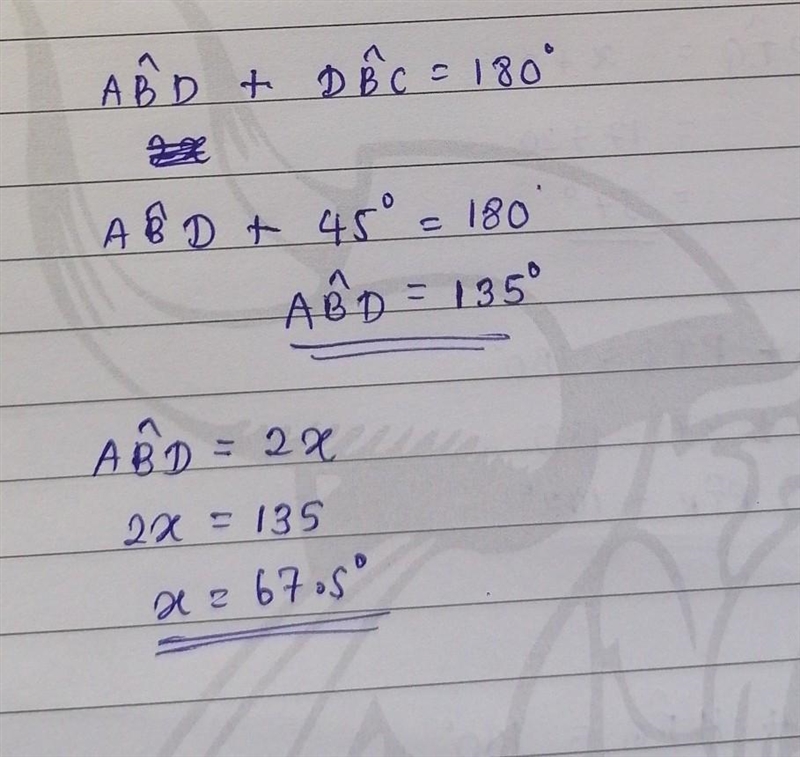 AB̂D + DB̂C = 180°
AB̂D + 45° = 180°
AB̂D = 135°
AB̂D = 2x
2x = 135
x = 67.5°